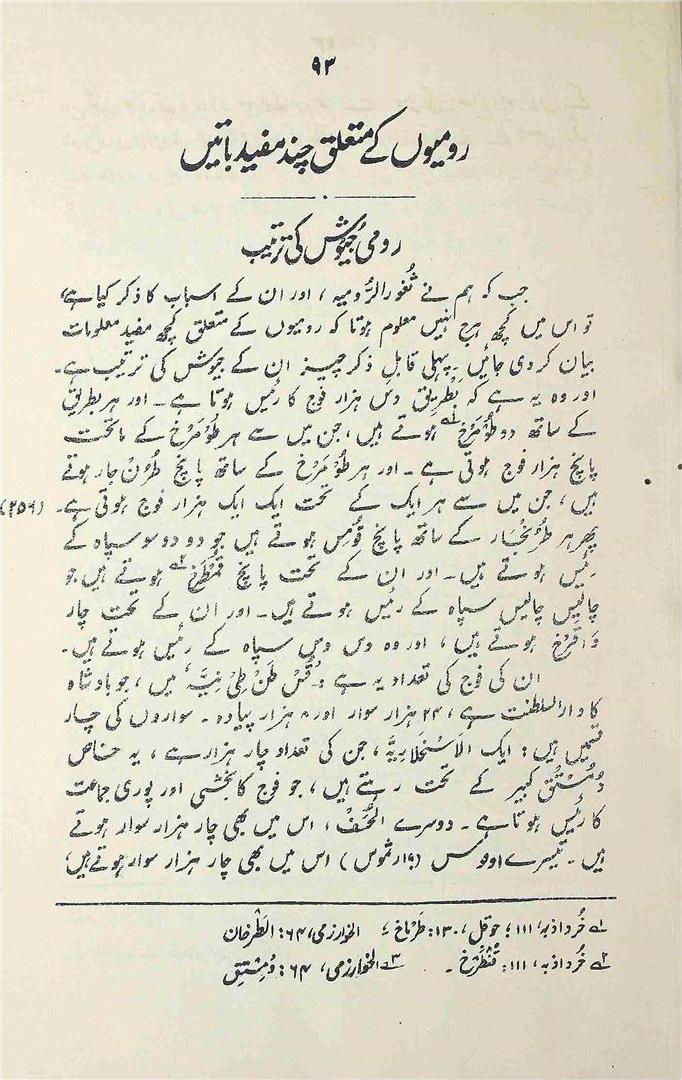 ۹۳
رومیوں کے متعلق چند مفید باتیں
رومی جُیوُش کی ترتیب
جب کہ ہم نے ثُغورالرُّومیہ، اور ان کے اسباب کا ذکر کیا ہے،
تو اس میں کچھ ہرج نہیں معلوم ہوتا کہ رومیوں کے متعلق کچھ مفید معلومات
بیان کر دی جائیں۔ پہلی قابلِ ذکر چیز ان کے جیوش کی ترتیب ہے۔
اور وہ یہ ہے کہ بِطْرِیْق دس ہزار فوج کا رئیس ہوتا ہے۔ اور ہر بطریق
کے ساتھ دو طُوْمَرْخ۱ ہوتے ہیں، جن میں سے ہر طُوْمَرْخ کے ماتحت
پانچ ہزار فوج ہوتی ہے۔ اور ہر طُوْمَرْخ کے ساتھ پانچ طُرُنْجار ہوتے
ہیں، جن میں سے ہر ایک کے تحت ایک ایک ہزار فوج ہوتی ہے۔ (۲۵۶)
پھر ہر طُرُنْجار کے ساتھ پانچ قُومِس ہوتے ہیں جو دو دو سو سپاہ کے
رئیس ہوتے ہیں۔ اور ان کے تحت پانچ قَمْطَرْخ۲ ہوتے ہیں جو
چالیس چالیس سپاہ کے رئیس ہوتے ہیں۔ اور ان کے تحت چار
دَاقَرْخ ہوتے ہیں، اور وہ دس دس سپاہ کے رئیس ہوتے ہیں۔
ان کی فوج کی تعداد یہ ہے: قُسْ طَنْ طِیْ نِیَّہ میں، جو بادشاہ
کا دارالسلطنت ہے، ۲۴ ہزار سوار اور ۸ ہزار پیادہ۔ سواروں کی چار
قسمیں ہیں: ایک الاَسْخلاریَّہ، جن کی تعداد چار ہزار ہے، یہ خاص
دُمُسْتُق کبیر کے تحت رہتے ہیں، جو فوج کا بخشی اور پوری جماعت
کا رئیس ہوتا ہے۔ دوسرے الحُنَف، اس میں بھی چار ہزار سوار ہوتے
ہیں۔ تیسرے اوفوس (۱۹ رثموس) اس میں بھی چار ہزار سوار ہوتے ہیں،
۱ خُرداذبہ، ۱۱۱؛ حوقل، ۱۳۰: طَرْماخ؛ الخوارزمی، ۶۴: الطَّرخان
۲ خُرداذبہ، ۱۱۱: قَنْطَرْخ۔ ۳ الخوارزمی، ۶۴: دُمِسْتِق